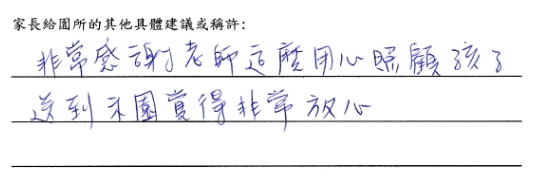 家長給園所的其他具體建議或稱許：
非常感謝老師這麼用心照顧孩子
送到本園覺得非常放心